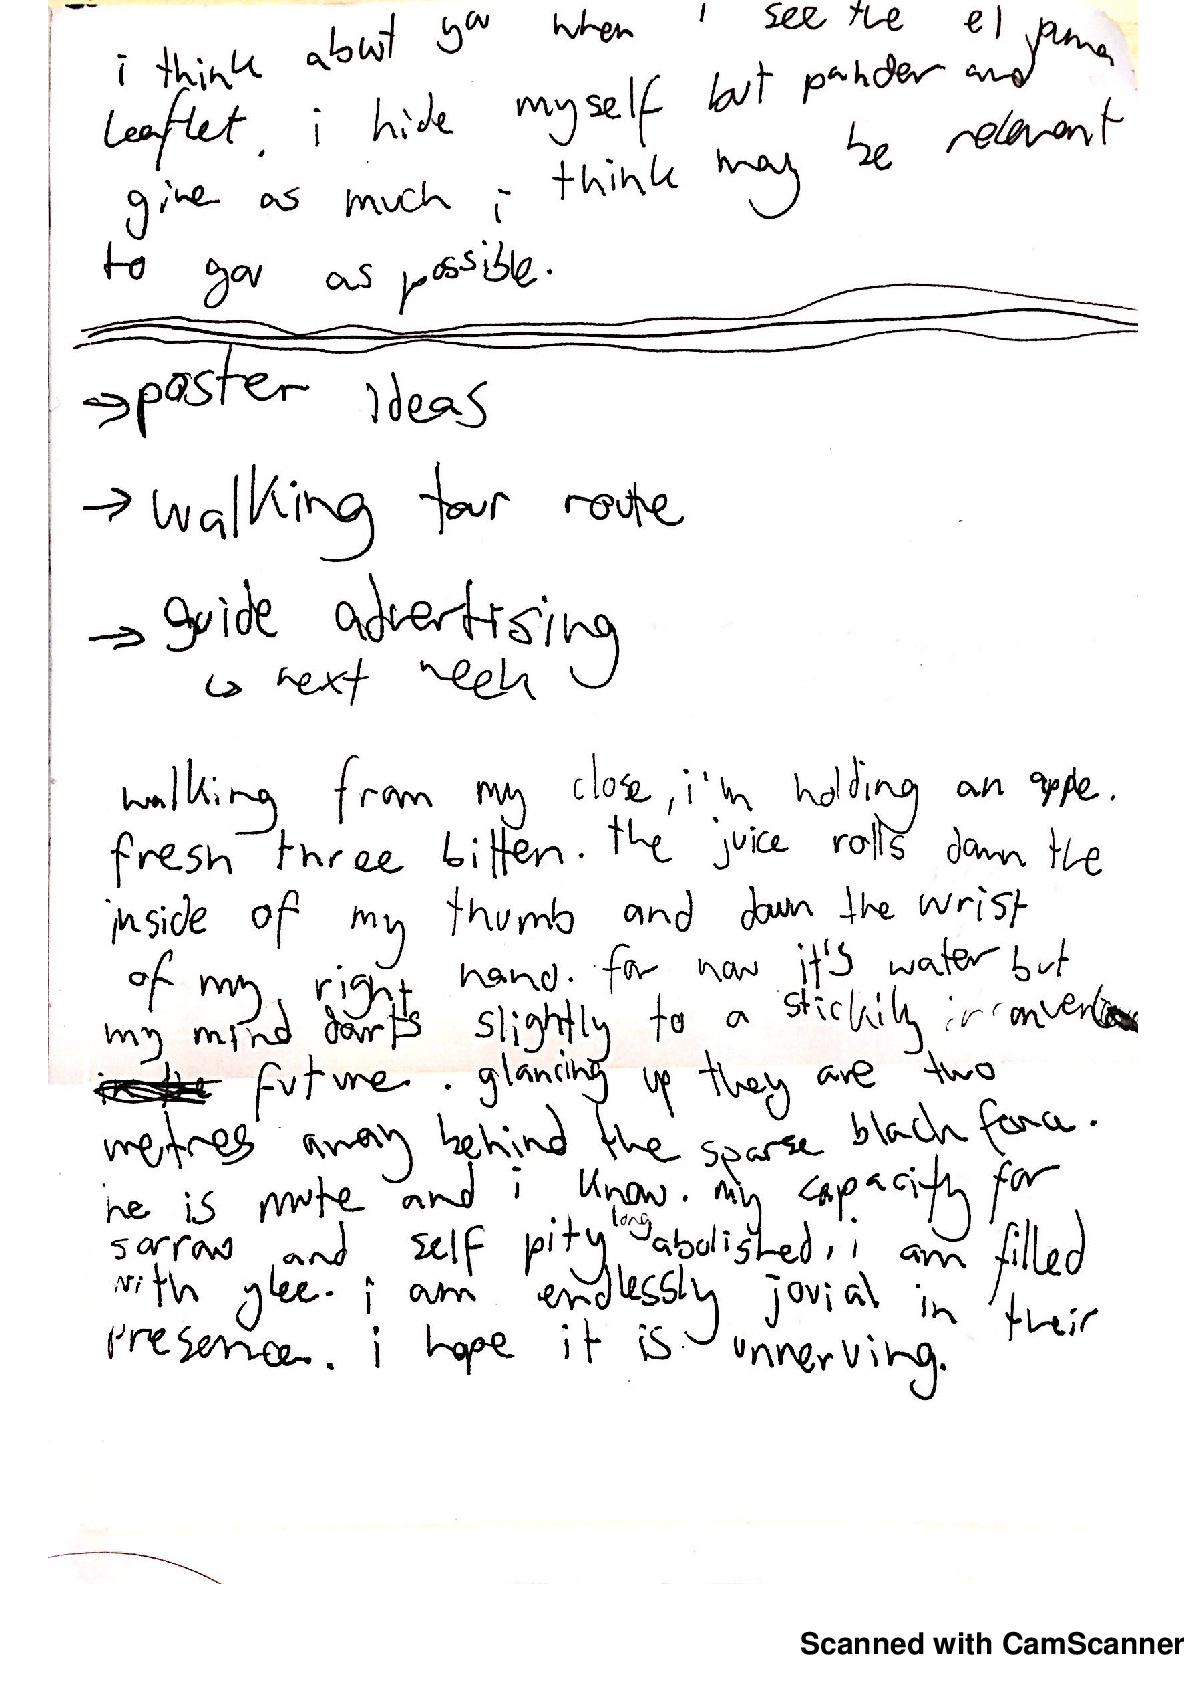 i think about you when i see the el puma
leaflet. i hide myself but pander and
give as much i think may be relevant
to you as possible.
→ poster ideas
→ walking tour route
→ guide advertising
↳ next week
walking from my close, i'm holding an apple.
fresh three bitten. the juice rolls down the
inside of my thumb and down the wrist
of my right hand. for now it's water but
my mind darts slightly to a stickily
future. glancing up they are two
metres away behind the sparse black fence.
he is mute and i know. my capacity for
sorrow and self pity long abolished, i am filled
with glee. i am endlessly jovial in their
presence. i hope it is unnerving.
Scanned with CamScanner